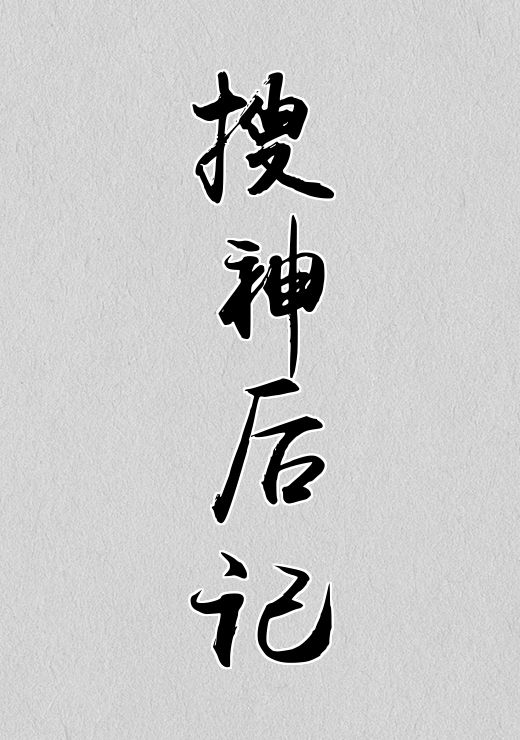 搜神后记